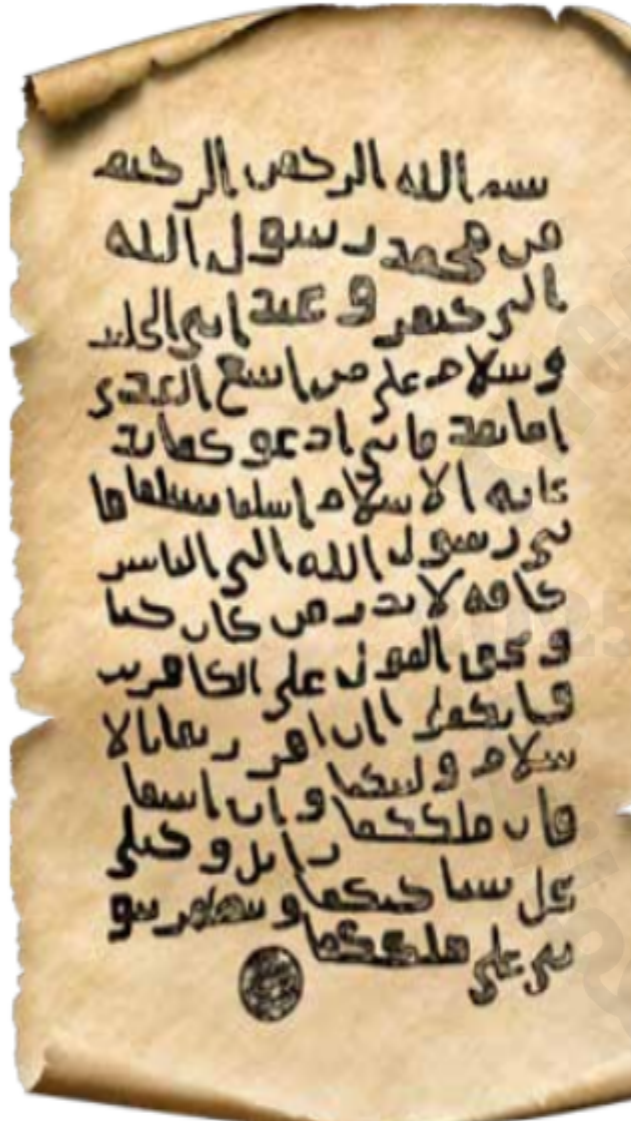 بسم الله الرحمن الرحيم
من محمد رسول الله
الى جيفر وعبد ابني الجلند
وسلام على من اتبع الهدى
اما بعد فاني ادعوكما بد
عاية الاسلام اسلما تسلما فا
ني رسول الله الى الناس
كافة لانذر من كان حيا
ويحق القول على الكافرين
فانكما ان اقررتما بالا
سلام وليتكما وان ابيتما
فان ملككما زايل وخيلي
تحل بساحتكما وتظهر نبو
تي على ملككما